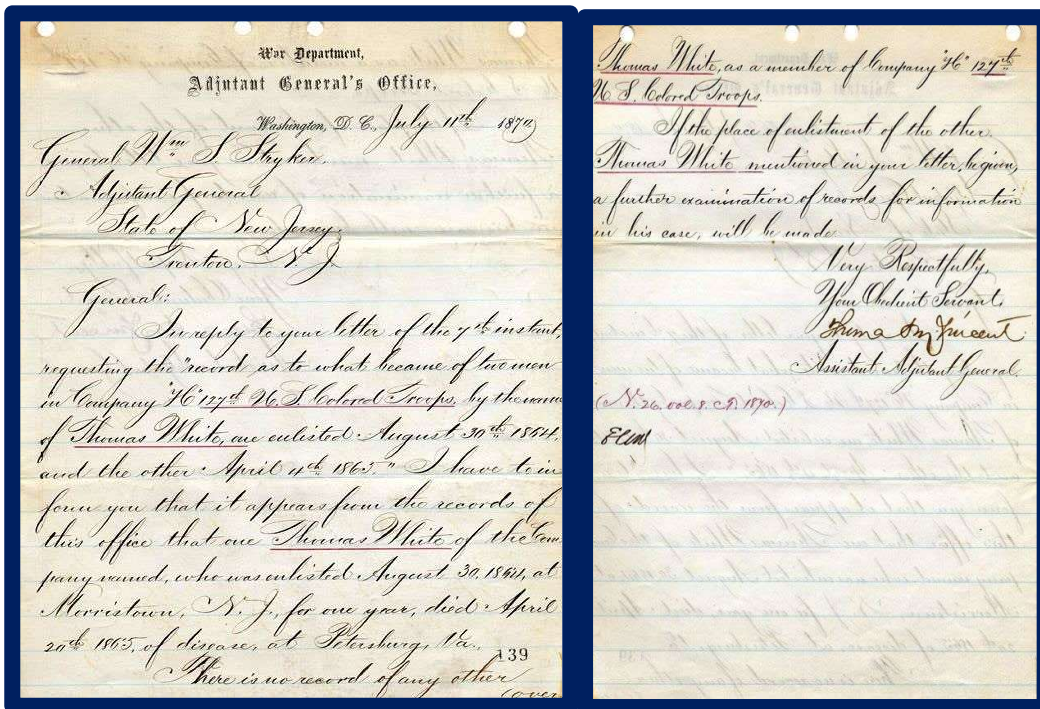 War Department,
Adjutant General's Office,
Washington, D. C., July 11th 1870
General Wm S. Stryker.
Adjutant General
State of New Jersey.
Trenton. N. J.
General:
In reply to your letter of the 7th instant,
requesting the "record as to what became of two men
in Company "H" 127th U. S. Colored Troops, by the name
of Thomas White, one enlisted August 30th 1864,
and the other April 4th 1865." I have to in
form you that it appears from the records of
this office that one Thomas White of the Com
pany named, who was enlisted August 30, 1864, at
Morristown, N. J., for one year, died April
20th 1865, of disease, at Petersburg, Va.,
139
There is no record of any other
(over
Thomas White, as a member of Company "H" 127th
U. S. Colored Troops.
If the place of enlistment of the other
Thomas White mentioned in your letter, be given,
a further examination of records for information
in his case, will be made.
Very Respectfully,
Your Obedient Servant.
Thomas M. Vincent
Assistant Adjutant General.
(N. 26. vol. 8. 1870.)